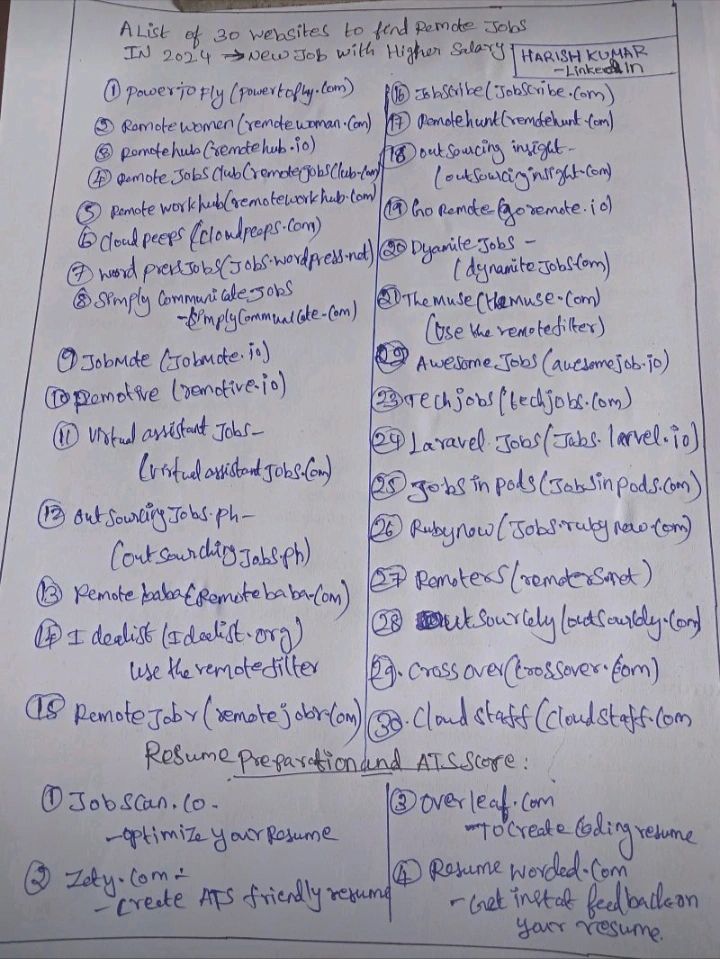 A List of 30 websites to find Remote Jobs
IN 2024 → New Job with Higher Salary
HARISH KUMAR
- Linkedin
① Powertofly (powertofly.com)
② Remote women (remotewoman.com)
③ Remotehub (remotehub.io)
④ Remote Jobs Club (remotejobsclub.com)
⑤ Remote workhub (remoteworkhub.com)
⑥ Cloud peeps (cloudpeeps.com)
⑦ Word press Jobs (Jobs.wordpress.net)
⑧ Simply Communicate Jobs
- Simply Communicate.com)
⑨ Jobmote (Jobmote.io)
⑩ Remotive (remotive.io)
⑪ Virtual assistant Jobs -
(virtual assistant Jobs.com)
⑫ Outsourcing Jobs.ph -
(outsourching Jobs.ph)
⑬ Remote baba (Remotebaba.com)
⑭ Idealist (Idealist.org)
use the remote filter
⑮ Remote Jobr (remotejobr.com)
⑯ Jobscribe (Jobscribe.com)
⑰ Remotehunt (remotehunt.com)
⑱ outsourcing insight -
(outsourcinginsight.com)
⑲ Go Remote (goremote.io)
⑳ Dyamite Jobs -
(dynamite Jobs.com)
㉑ The Muse (themuse.com)
(Use the remote filter)
㉒ Awesome Jobs (awesomejob.io)
㉓ Tech jobs (techjobs.com)
㉔ Laravel Jobs (Jobs.larvel.io)
㉕ Jobs in pods (Jobsinpods.com)
㉖ Rubynow (Jobs.rubynow.com)
㉗ Remoters (remoters.net)
㉘ Outsourcely (outsourcely.com)
㉙. Crossover (crossover.com)
㉚. Cloud staff (Cloudstaff.com
Resume Preparation and ATS Score:
① Jobscan.co -
- Optimize your Resume
② Zety.com -
- Create ATS friendly resume
③ Overleaf.com
- To Create Coding resume
④ Resume worded.com
- Get instat feedback on
your resume.